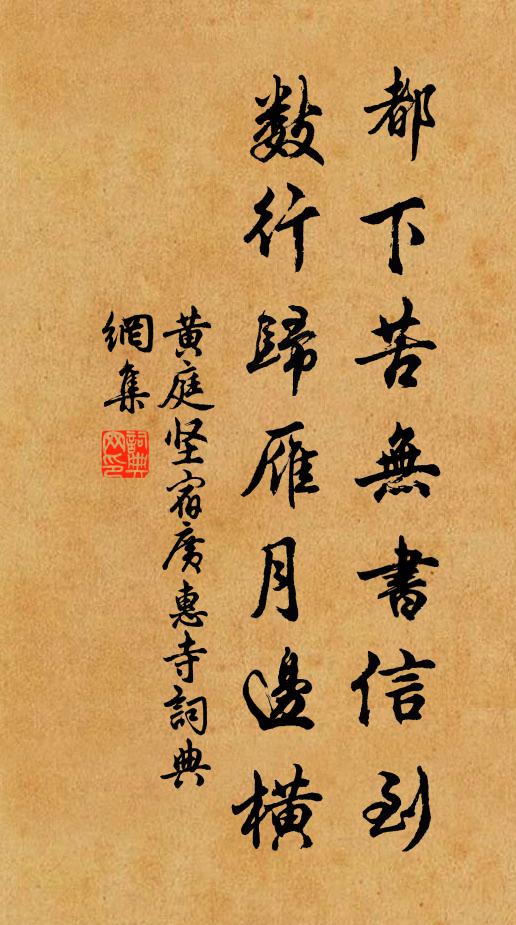 都下苦無書信到
數行歸雁月邊橫
黄庭坚宿廣惠寺詞典
網集
詞典网印